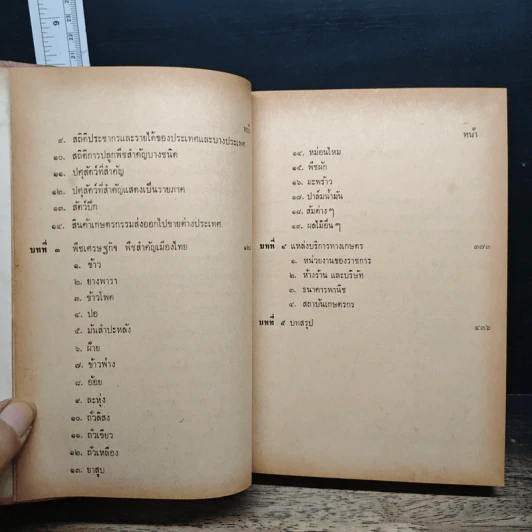 ๙. สถิติประชากรและรายได้ของประเทศและบางประเทศ
๑๐. สถิติการปลูกพืชสำคัญบางชนิด
๑๑. ปศุสัตว์ที่สำคัญ
๑๒. ปศุสัตว์ที่สำคัญแสดงเป็นรายภาค
๑๓. สัตว์ปีก
๑๔. สินค้าเกษตรกรรมส่งออกไปขายต่างประเทศ
บทที่ ๓ พืชเศรษฐกิจ พืชสำคัญเมืองไทย
๑. ข้าว
๒. ยางพารา
๓. ข้าวโพด
๔. ปอ
๕. มันสำปะหลัง
๖. ฝ้าย
๗. ข้าวฟ่าง
๘. อ้อย
๙. ละหุ่ง
๑๐. ถั่วลิสง
๑๑. ถั่วเขียว
๑๒. ถั่วเหลือง
๑๓. ยาสูบ
หน้า
๑๔. หม่อนไหม
๑๕. พืชผัก
๑๖. มะพร้าว
๑๗. ปาล์มน้ำมัน
๑๘. ส้มต่างๆ
๑๙. ผลไม้อื่นๆ
บทที่ ๔ แหล่งบริการทางเกษตร ๓๗๓
๑. หน่วยงานของราชการ
๒. ห้างร้าน และบริษัท
๓. ธนาคารพานิช
๔. สถาบันเกษตรกร
บทที่ ๕ บทสรุป ๔๓๖